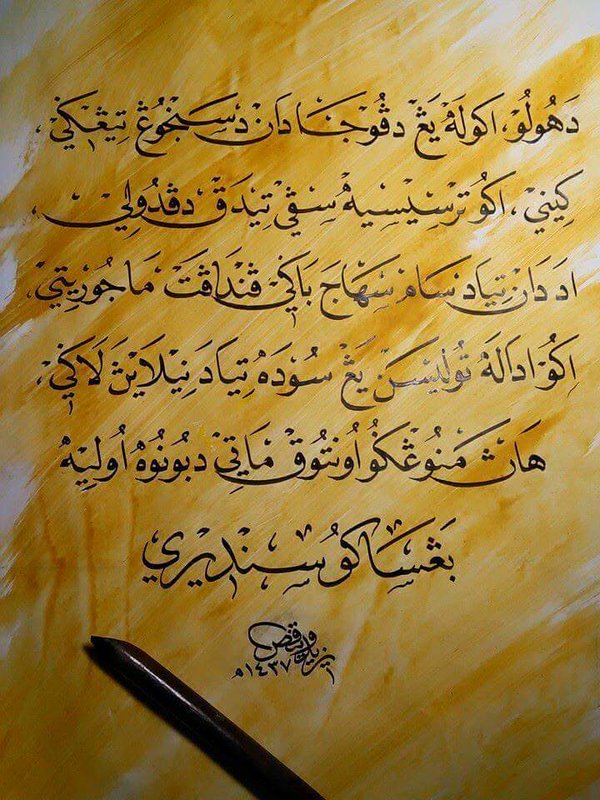 دهولو، اكوله يڠ دڤوجا دان دسنجوڠ تيڠکي،
كيني، اكو ترسيسيه سڤي تيدق دڤدولي،
اد دان تياد سام سهاج باکي ڤنداڤت ماجوريتي،
اكو اداله توليسن يڠ سوده تياد نيلاين لاکي،
هاڽ منوڠکو اونتوق ماتي دبونوه اوليه
بڠساكو سنديري
١٤٣٧م